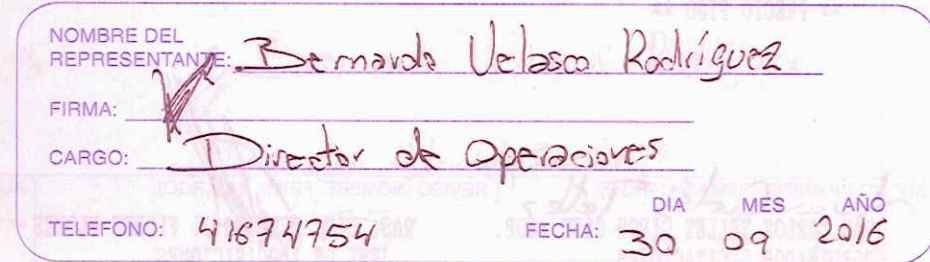 NOMBRE DEL
REPRESENTANTE: Bernardo Velasco Rodríguez
FIRMA:
CARGO: Director de Operaciones
DIA MES AÑO
TELEFONO: 41674754 FECHA: 30 09 2016